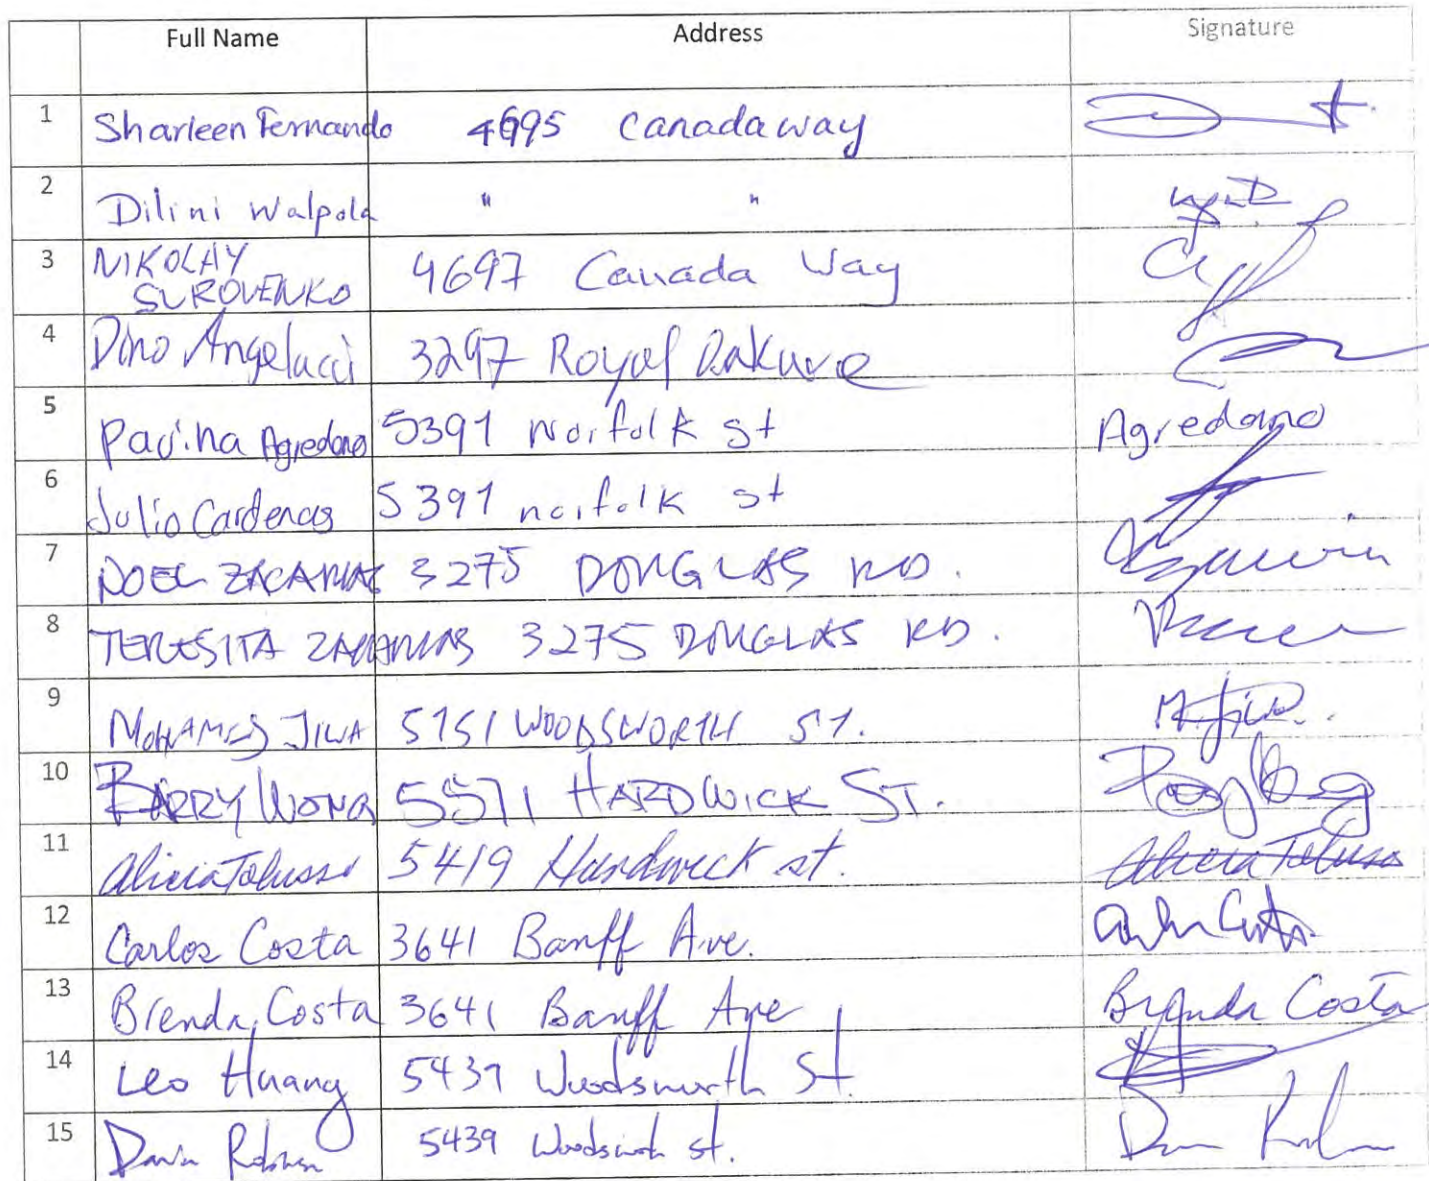 Full Name Address Signature
1 Sharleen Fernando 4695 Canada way
2 Dilini Walpola " "
3 NIKOLAY SUROVENKO 4697 Canada Way
4 Dino Angelucci 3297 Royal Oak
5 Agredano 5391 Norfolk st Agredano
6 Julio Cardenas 5391 norfolk st
7 NOEL ZACARIAS 3275 DOUGLAS RD.
8 TERESITA ZACARIAS 3275 DOUGLAS RD.
9 MOHAMED JIWA 5151 WOODSWORTH ST.
10 BARRY WONG 5571 HARDWICK ST.
11 Alicia Tolusso 5419 Hardwick st. Alicia Tolusso
12 Carlos Costa 3641 Banff Ave.
13 Brenda Costa 3641 Banff Ave Brenda Costa
14 Leo Huang 5437 Woodsworth St.
15 5439 Woodsworth st.